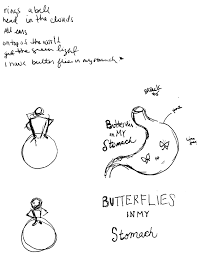 rings a bell
head in the clouds
All ears
on top of the world
get the green light
i have butterflies in my stomach
Butterflies
in MY
Stomach
BUTTERFLIES
IN MY
Stomach